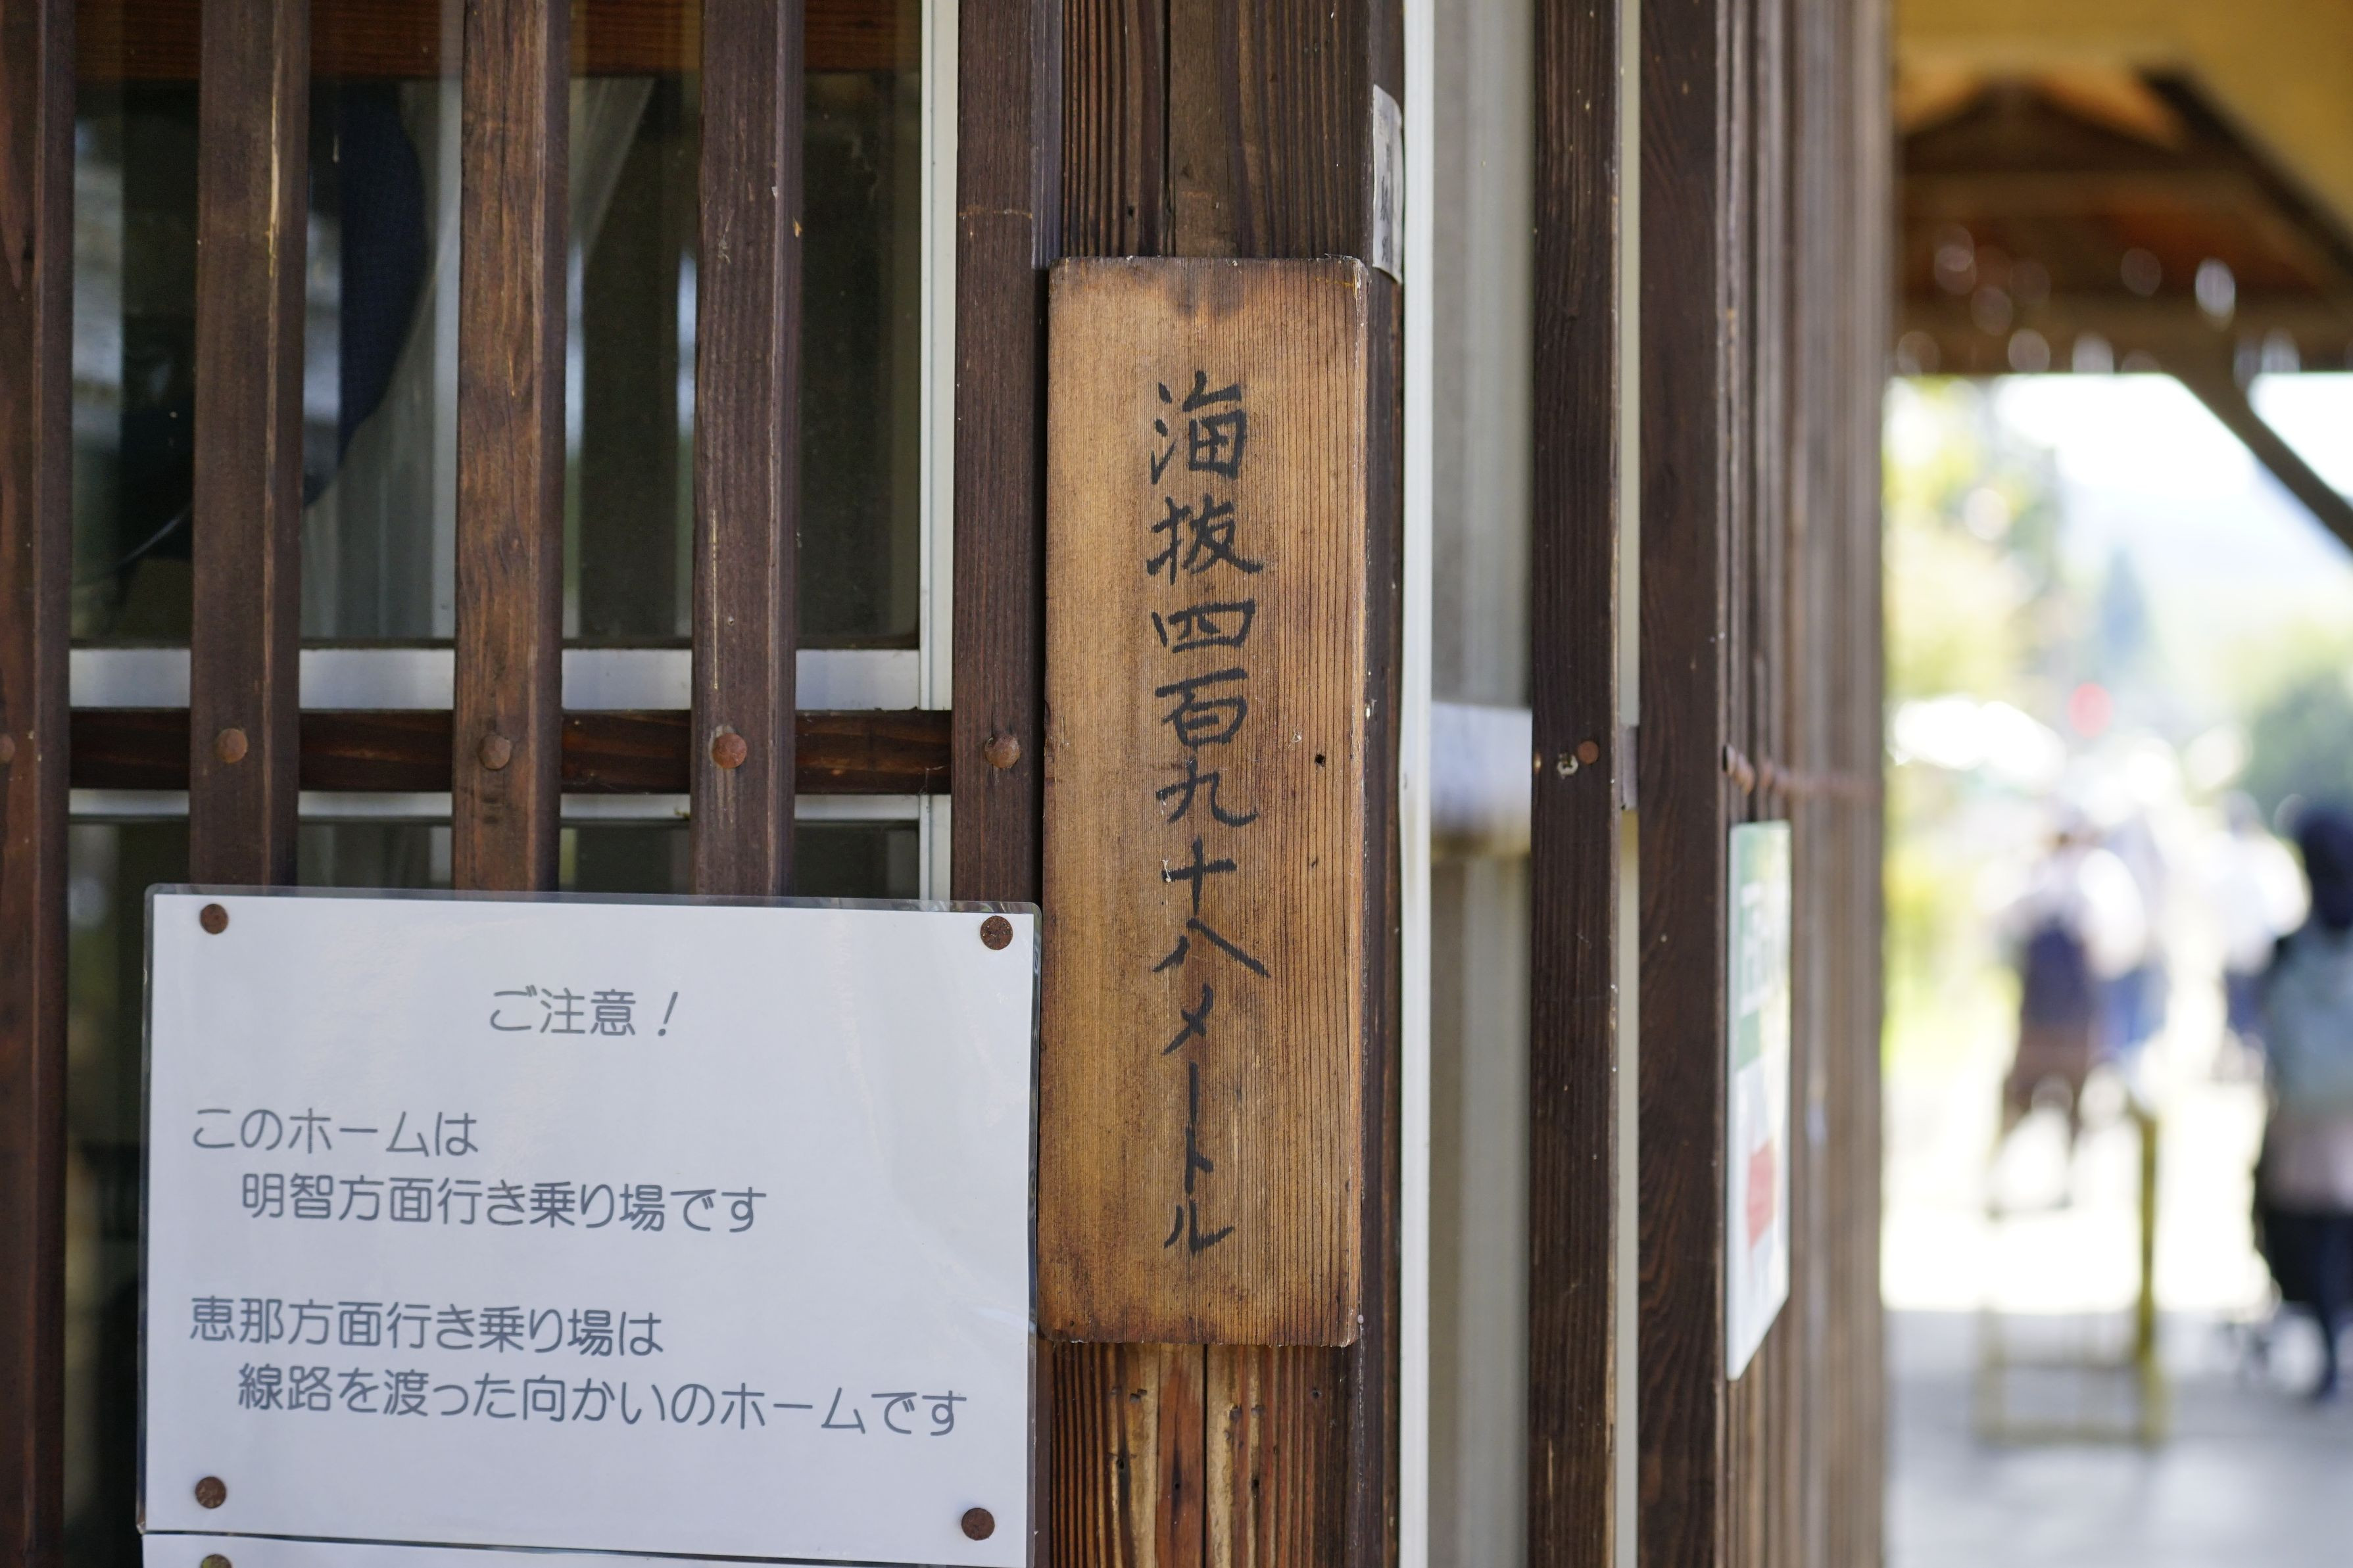 海抜四百九十八メートル
ご注意！
このホームは
明智方面行き乗り場です
恵那方面行き乗り場は
線路を渡った向かいのホームです